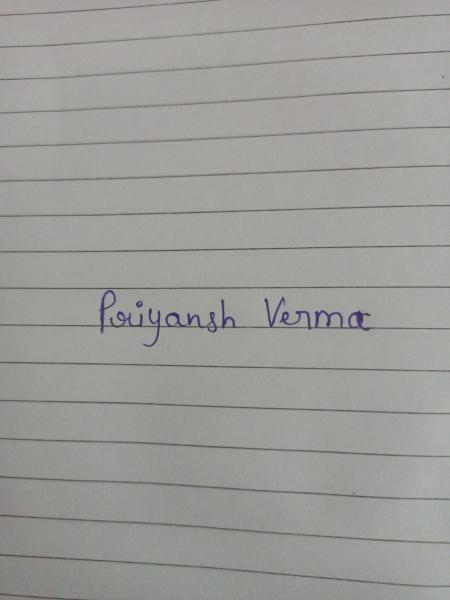 Priyansh Verma